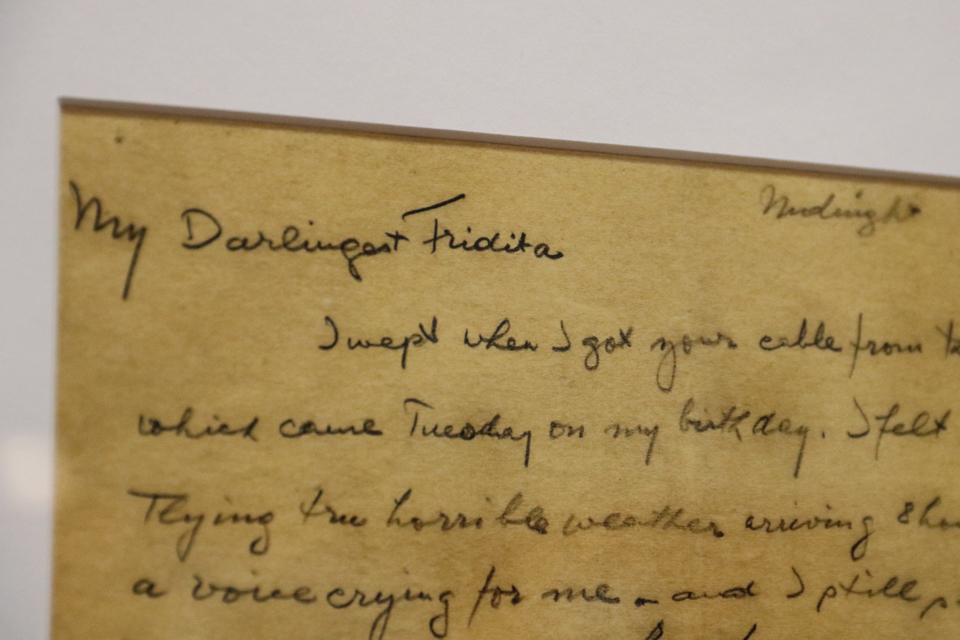 Midnight
My Darlingest Fridita
I wept when I got your cable from
which came Tuesday on my birthday. I felt
Flying thru horrible weather arriving
a voice crying for me - and I still